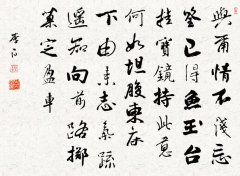 與君情不淺忘
筌已得魚玉台
挂寶鏡持此意
何如坦腹東床
下由來志氣疏
遥知向前路擲
菓定盈車